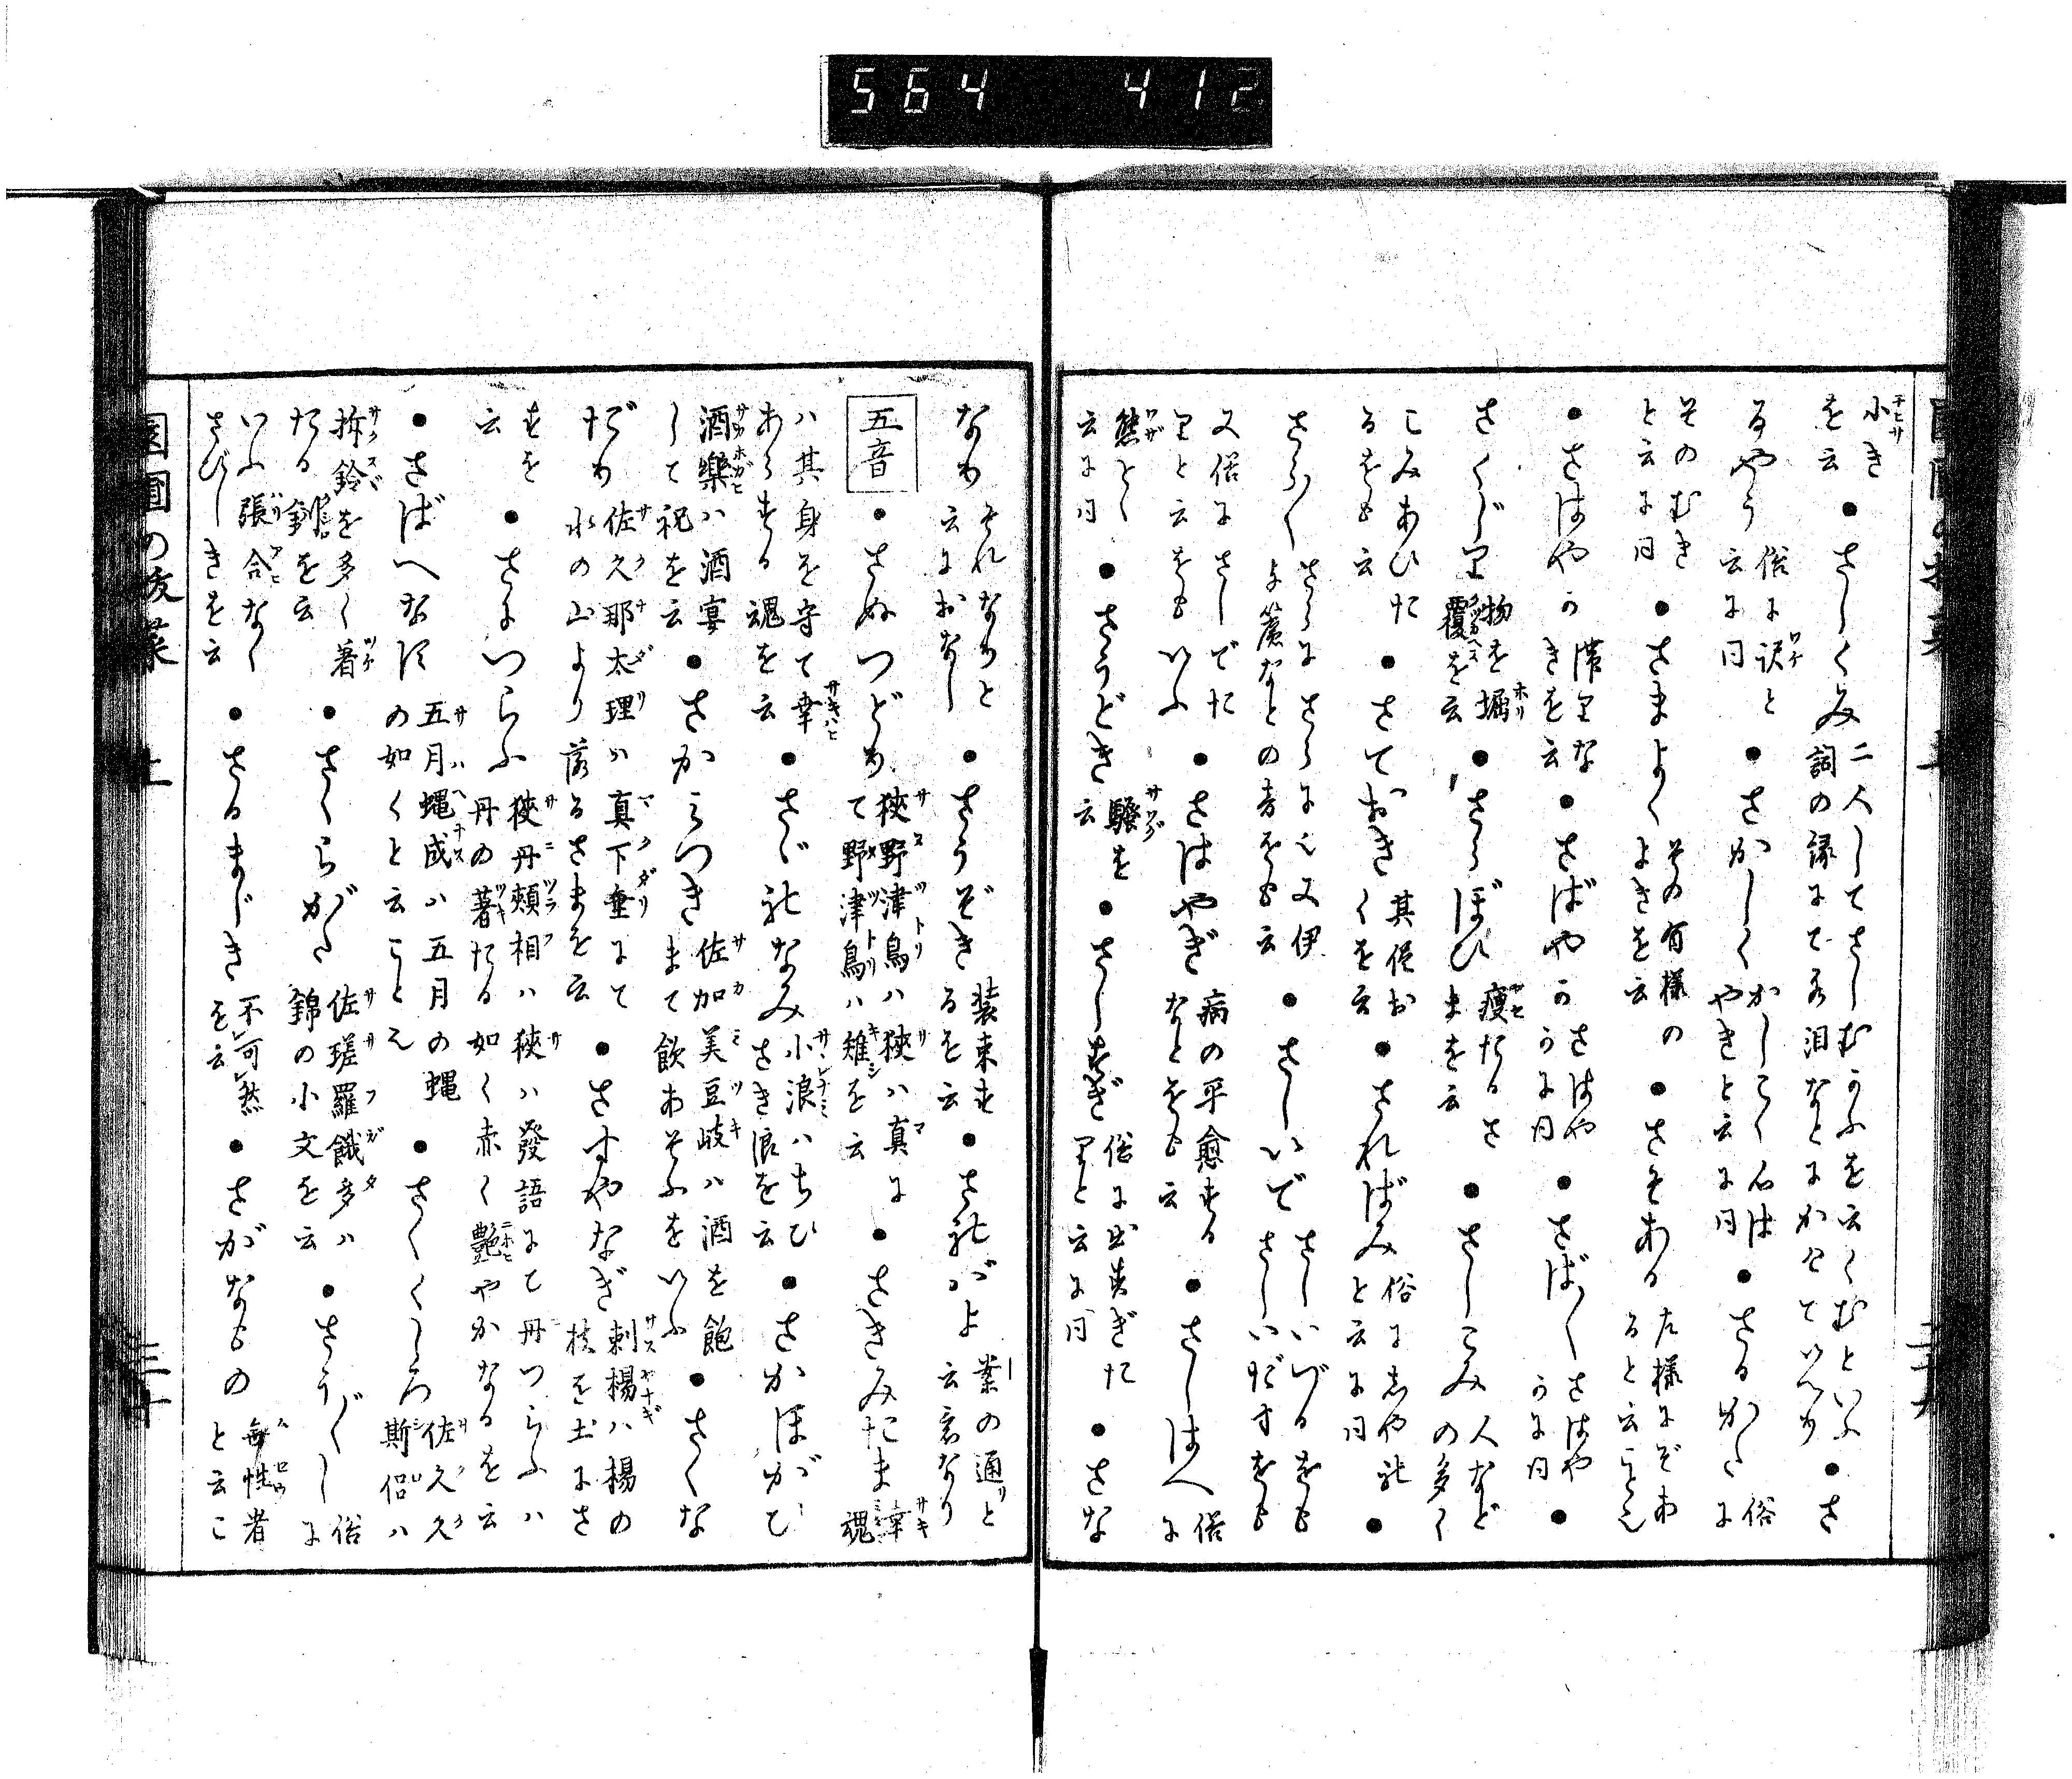 564 412
小きを云 ●さしくみ 二人してさしむかふを云くむといふ詞の縁にて多泪なとにかけていへり ●さ
るやう 俗に訳と云に同 ●さかしくかしこく 名はやきと云に同 ●さるかた 俗に
そのむきと云に同 ●さまよく その有様のよきを云 ●さもある 左様にぞあると云こと也
●さはやか 滞りなきを云 ●さばやか さはやかに同 ●さば〱 さはやかに同 ●
さくじり 物を堀覆を云 ●さらぼひ 痩たるさまを云 ●さしこみ 人などの多く
こみあひたるをも云 ●さておき 其侭おくを云 ●さればみ 俗にしや れと云に同 ●
さら〱 さらにさらに也又伊予簾なとの音をも云 ●さしいで さしいづるをもさしいだすをも
又俗にさしでたりと云をもいふ ●さはやぎ 病の平愈するなとをも云 ●さしはへ 俗に
態とと云に同 ●さうどき 騒を云 ●さしすぎ 俗に出過ぎたりと云に同 ●さな
なり それなりと云におなし ●さうぞき 装束するを云 ●さればよ 案の通りと云意なり
五音 ●さぬつどり 狭野津鳥ハ狭ハ真にて野津鳥ハ雉を云 ●さきみたま 幸魂
ハ其身を守て幸あらする魂を云 ●さゞれなみ 小浪ハちひさき浪を云 ●さかほがひ
酒樂ハ酒宴して祝を云 ●さかみつき 佐加美豆岐ハ酒を飽まて飲あそふをいふ ●さくな
だり 佐久那太理ハ真下垂にて水の山より落るさまを云 ●さすやなぎ 刺楊ハ楊の枝を土にさ
すを云 ●さにつらふ 狭丹頬相ハ狭ハ發語にて丹つらふハ丹の著たる如く赤く艶やかなるを云
●さばへなす 五月蝿成ハ五月の蝿の如くと云こと也 ●さくくしろ 佐久久斯侶ハ
拆鈴を多く著たる釧を云 ●さゝらがた 佐瑳羅餓多ハ錦の小文を云 ●さう〲し 俗に
いふ張合なくさびしきを云 ●さるまじき 不可然を云 ●さがなもの 無性者と云こ
園圃の抜菜 上 三十